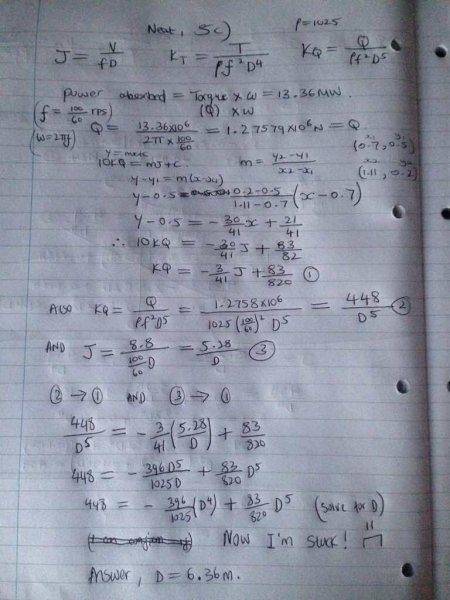 Next, 5c) ρ=1025
J = V/fD K_T = T/ρf²D⁴ K_Q = Q/ρf²D⁵
Power absorbed = Torque × ω = 13.36 MW.
(f = 100/60 rps) (Q) × ω
(ω=2πf) Q = 13.36×10⁶/2π × 100/60 = 1.27579×10⁶ N = Q
x₁ y₁
(0.7, 0.5)
y = mx+c
10KQ = mJ + c. m = y₂-y₁/x₂-x₁
x₂ y₂
(1.11, 0.2)
y-y₁ = m(x-x₁)
y-0.5 = 0.2-0.5/1.11-0.7 (x-0.7)
y-0.5 = -30/41 x + 21/41
∴ 10KQ = -30/41 J + 83/82
KQ = -3/41 J + 83/820 ①
Also KQ = Q/ρf²D⁵ = 1.2758×10⁶/1025(100/60)² D⁵ = 448/D⁵ ②
AND J = 8.8/100/60 D = 5.28/D ③
② → ① AND ③ → ①
448/D⁵ = -3/41 (5.28/D) + 83/820
448 = -396D⁵/1025D + 83/820 D⁵
448 = -396/1025 (D⁴) + 83/820 D⁵ (solve for D)
Now I'm stuck!
Answer, D = 6.36m.